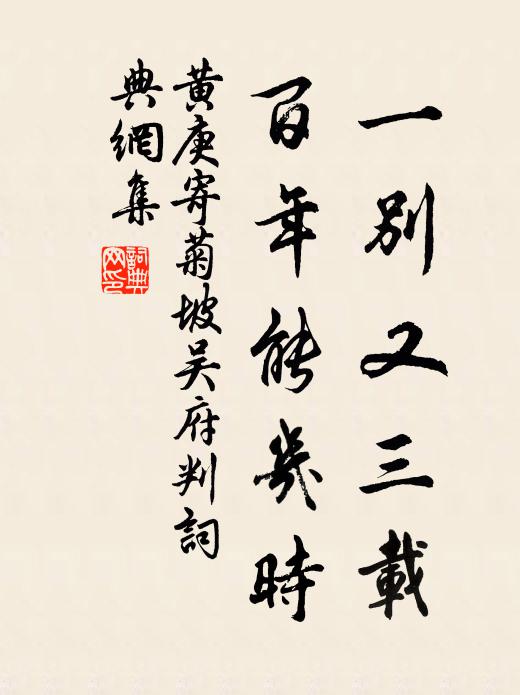 一別又三載
百年能幾時
黃庚寄菊坡吳府判詞
典網集
詞典
网印